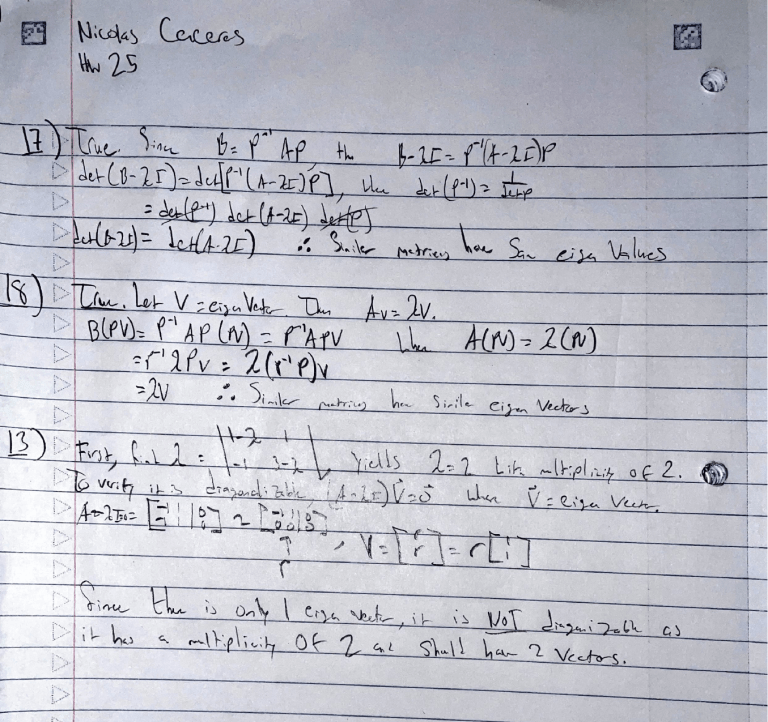 Nicolas Caceres
HW 25
17) True. Since B = P⁻¹AP, the B-λI = P⁻¹(A-λI)P
det(B-λI) = det[P⁻¹(A-λI)P], when det(P⁻¹) = 1/detP
= det(P⁻¹) det(A-λI) det(P)
det(B-λI) = det(A-λI) ∴ Similar matrices have Same eigen Values
18) True. Let V = eigen Vector. Then Av = λv.
B(PV) = P⁻¹AP(PV) = P⁻¹APV When A(PV) = λ(PV)
= P⁻¹λPv = λ(P⁻¹P)v
= λv ∴ Similar matrices have eigen Vectors
13) First, find λ = |1-λ 1 / -1 3-λ| yields λ=2 with multiplicity of 2.
To verify it is diagonalizable, (A-λI)V⃗=0⃗ when V⃗ = eigen Vector.
A-2I₂ = [-1 1 | 0 / -1 1 | 0] ~ [-1 1 | 0 / 0 0 | 0]
↑ r, V = [r / r] = r[1 / 1]
Since there is only 1 eigen vector, it is NOT as
it has a multiplicity of 2 and have 2 Vectors.